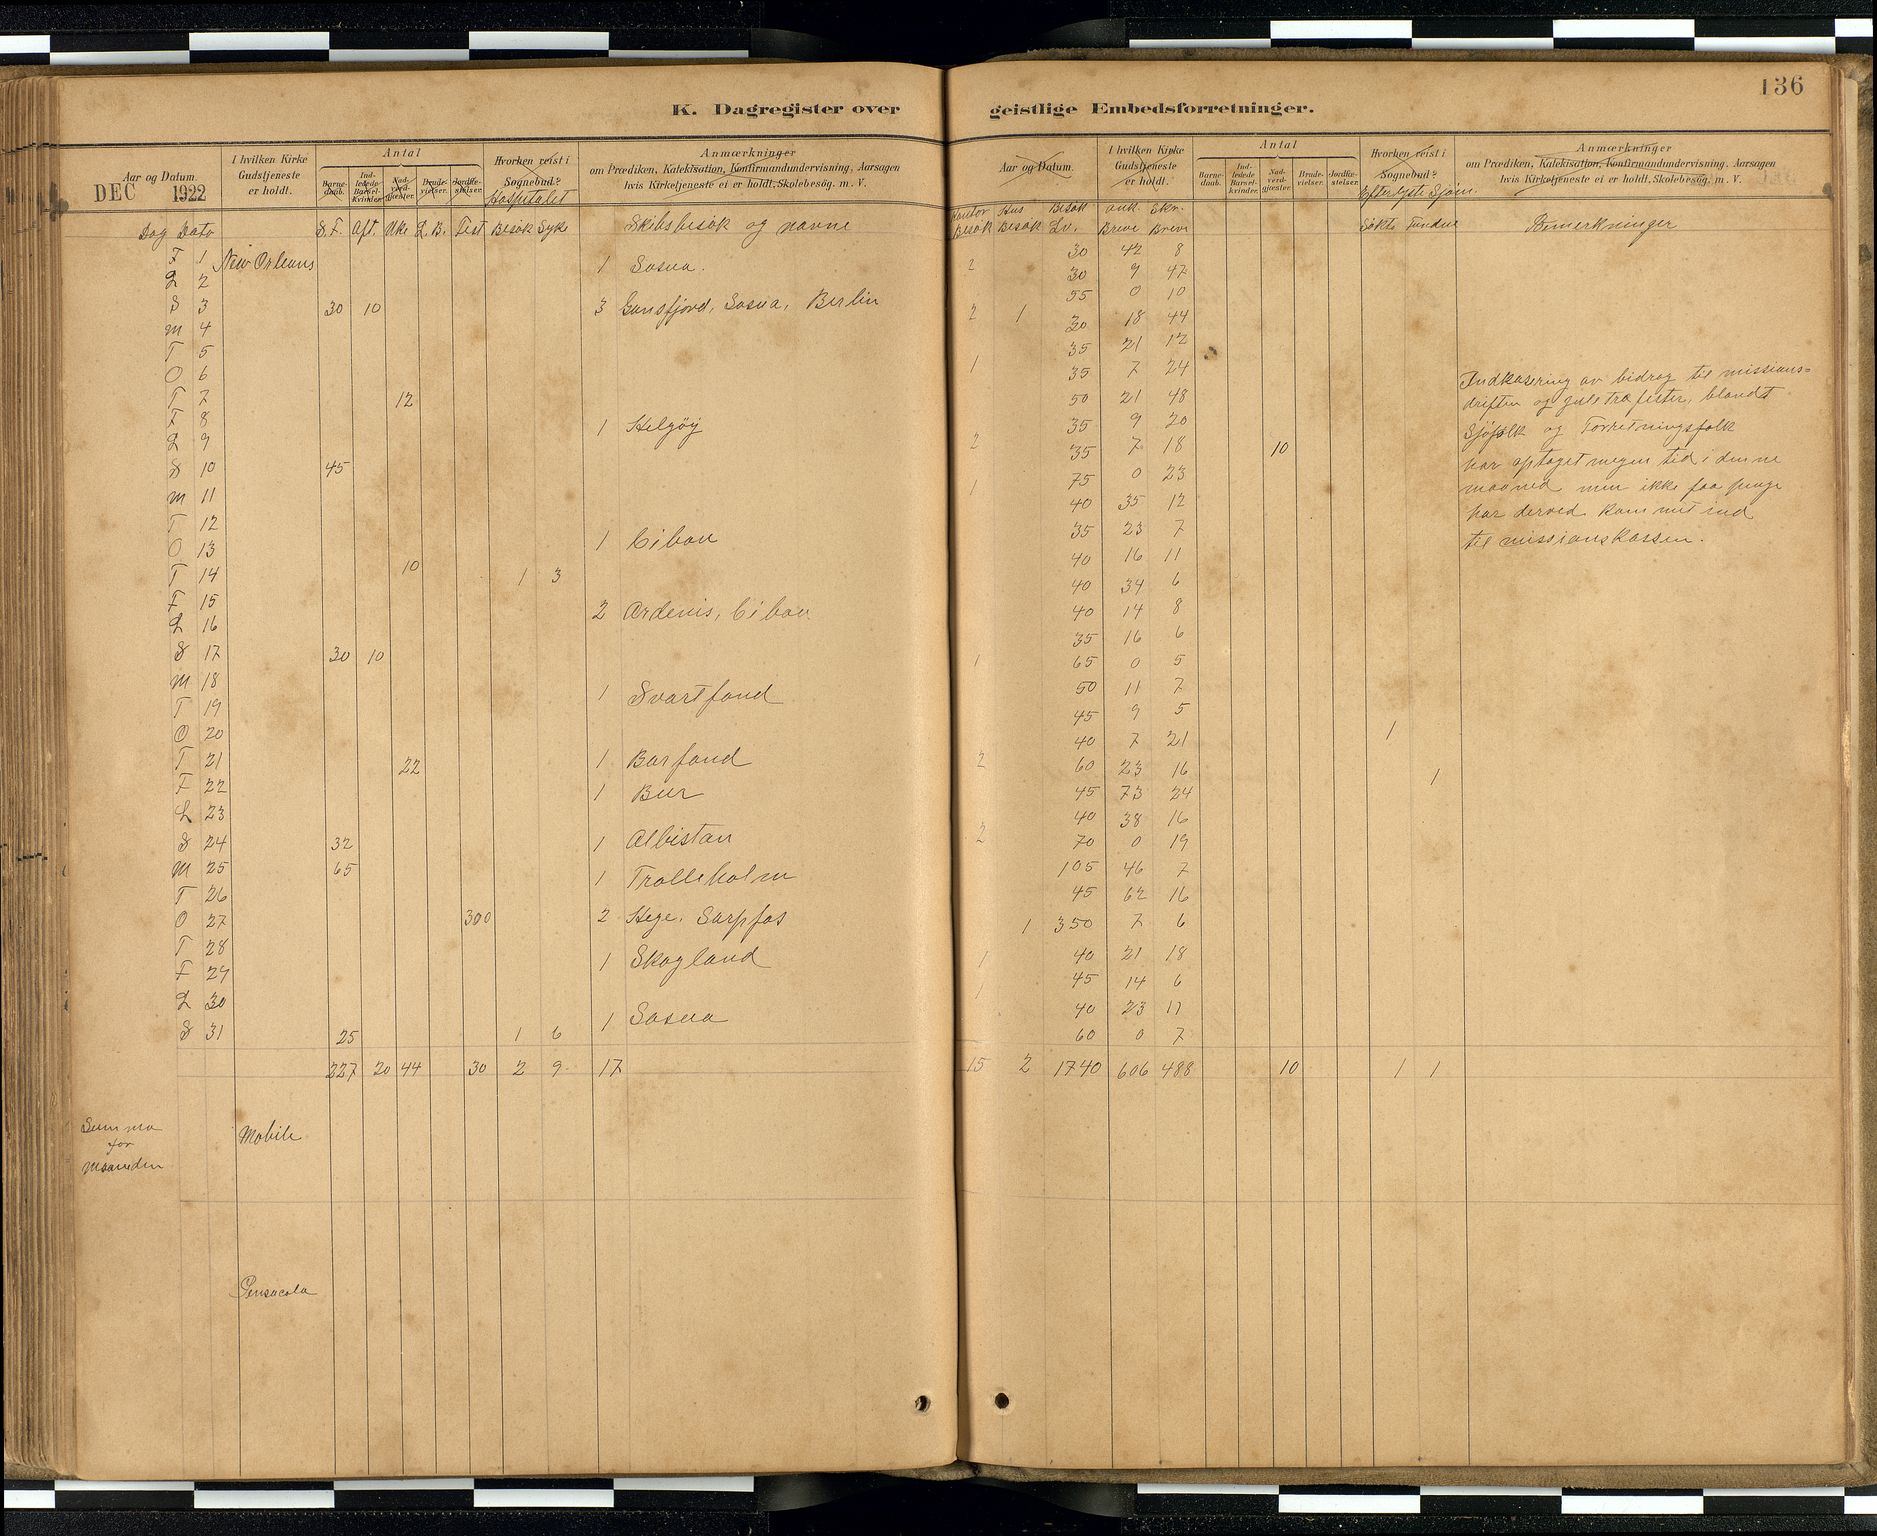 136
K. Dagregister over geistlige Embedsforretninger.
Aar og Datum. I hvilken Kirke Gudstjeneste er holdt. Antal Barnedaab. Indledede Barselkvinder. Nadverdgjester. Brudevielser. Jordfæstelser. Hvorhen reist i Sognebud? Anmærkninger om Prædiken, Katekisation, Konfirmandundervisning, Aarsagen hvis Kirketjeneste ei er holdt, Skolebesøg. m. V.
Aar og Datum. I hvilken Kirke Gudstjeneste er holdt. Antal Barnedaab. Indledede Barselkvinder. Nadverdgjester. Brudevielser. Jordfæstelser. Hvorhen reist i Sognebud? Anmærkninger om Prædiken, Katekisation, Konfirmandundervisning, Aarsagen hvis Kirketjeneste ei er holdt, Skolebesøg. m. V.
DEC 1922 Hospitalet
Dag Dato S. F. Aft. Uke L. B. Fest Besøk Syke Skibsbesøk og navne
Kontor Besøk Hus Besøk Besøk Lv. ank. Breve Skr. Breve Søkte Fundne Bemerkninger
F 1 New Orleans 1 Sosua. 2 30 42 8
L 2 30 9 47
S 3 30 10 3 Gansfjord, Sosua, Berlin 55 0 10
M 4 2 1 30 18 44
T 5 35 21 12
O 6 1 35 7 24
T 7 12 50 21 48
F 8 1 Helgøy 35 9 20
L 9 2 35 7 18 10
S 10 45 75 0 23
M 11 1 40 35 12
T 12 35 23 7
O 13 1 Cibao 40 16 11
T 14 10 1 3 40 34 6
F 15 40 14 8
L 16 2 Ardenis, Cibao 35 16 6
S 17 30 10 1 65 0 5
M 18 50 11 7
T 19 1 Svartfond 45 9 5
O 20 40 7 21 1
T 21 22 1 Barfond 2 60 23 16
F 22 1 Bur 45 73 24 1
L 23 40 38 16
S 24 32 1 Albistan 2 70 0 19
M 25 65 1 Trolleholm 105 46 7
T 26 45 62 16
O 27 300 2 Hege, Sarpfos 1 350 7 6
T 28 1 Skogland 1 40 21 18
F 29 45 14 6
L 30 1 Sosua 1 40 23 11
S 31 25 1 6 60 0 7
227 20 44 30 2 9 17 15 2 1740 606 488 10 1 1
Indkasering av bidrag til missions-
driften og juletræfester, blandt
Sjøfolk og Forretningsfolk
har optaget megen tid i denne
maaned men ikke faa penge
har derved kommet ind
til missionskassen.
Summa
for
Maaneden
Mobile
Pensacola